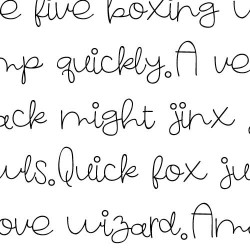 e five boxing w
mp quickly.A ve
ack might jinx
wls.Quick fox ju
ove wizard.Ama